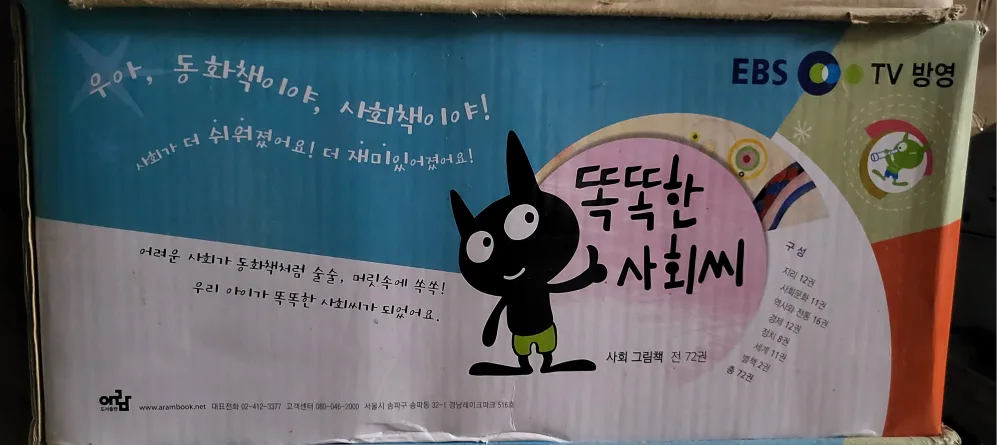 우아, 동화책이야, 사회책이야!
사회가 더 쉬워졌어요! 더 재미있어졌어요!
EBS TV 방영
똑똑한
사회씨
어려운 사회가 동화책처럼 술술, 머릿속에 쏙쏙!
우리 아이가 똑똑한 사회씨가 되었어요.
구성
지리 12권
사회문화 11권
역사와 전통 16권
경제 12권
정치 8권
세계 11권
별책 2권
총 72권
사회 그림책 전 72권
아람
도서출판
www.arambook.net 대표전화 02-412-3377 고객센터 080-046-2000 서울시 송파구 송파동 32-1 경남레이크파크 516호